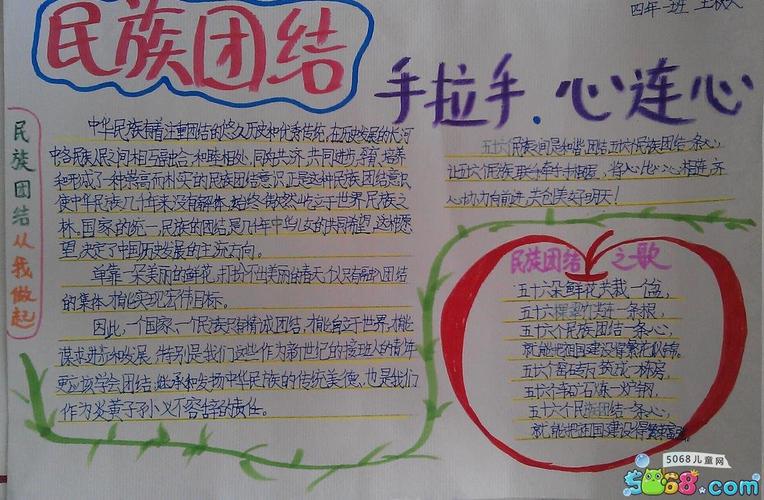 民族团结
四年一班
手拉手.心连心
民族团结从我做起
中华民族有着注重团结的悠久历史和优秀传统,在历史发展的长河
中各民族人民之间相互融合,和睦相处,同舟共济,共同进步,培养
和形成了一种崇高而朴实的民族团结意识,正是这种民族团结意识
使中华民族几千年来没有解体,始终傲然屹立于世界民族之
林。国家的统一,民族的团结是几千年中华儿女的共同希望,这种愿
望,决定了中国历史发展的主流方向。
单靠一朵美丽的鲜花,打扮不出美丽的春天,仅只有融入团结
的集体,才能实现宏伟目标。
因此,一个国家、一个民族只有精诚团结,才能自立于世界,才能
谋求进步和发展,特别是我们这些作为新世纪的接班人的青年
更应该学会团结,继承和发扬中华民族的传统美德,也是我们
作为炎黄子孙义不容辞的责任。
五十六个民族间是和谐团结,五十六个民族团结一条心,
让五十六个民族联合牵牛十相握,将心比心心相连,齐
心协力向前进,共创美好明天!
民族团结之歌
五十六朵鲜花共栽一个盆,
五十六棵翠竹共连一条根,
五十六个民族团结一条心,
就能把祖国建设得繁花似锦。
五十六个窑砖共筑成一栋房,
五十六个车矿石炼一炉钢,
五十六个民族团结一条心,
就能把祖国建设得繁荣富强。
5068儿童网
5068.com